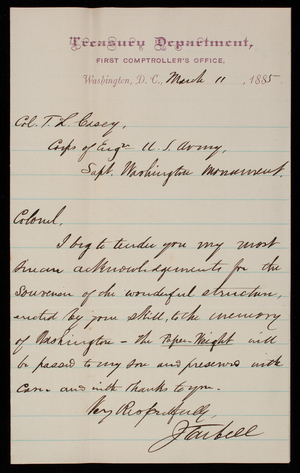 Treasury Department,
FIRST COMPTROLLER'S OFFICE,
Washington, D. C., March 11, 1885
Col. T. L. Casey,
Corps of Engr U. S. Army,
Supt. Washington Monument.
Colonel,
I beg to tender you my most
sincere acknowledgements for the
Souvenir of the wonderful structure,
erected by your skill, to the memory
of Washington - The Paper-Weight will
be passed to my son and preserved with
care - and with thanks to you.
Very Respectfully,
J Tarbell